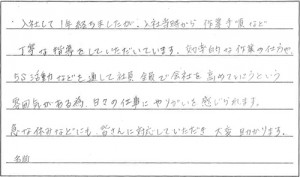 入社して1年経のましたが、入社当時から作業手順など
丁寧な指導をしていただいています。効率的な作業の仕方や、
5S活動などを通して社員全員で会社を高めていこうという
雰囲気がある為、日々の仕事にやりがいを感じられます。
急な休みなどにも、皆さんに対応していただき大変助かります。
名前